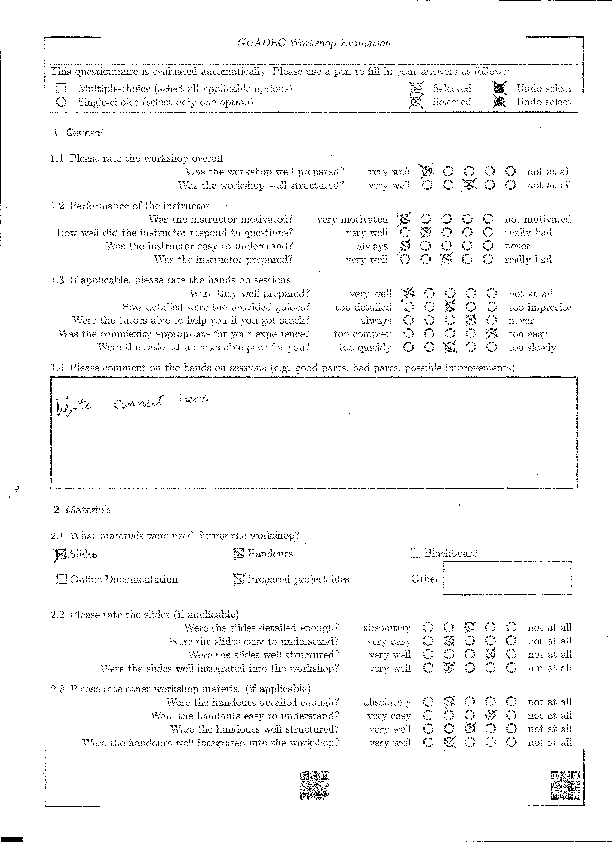 GUADEC Workshop Evaluation
This questionnaire is evaluated automatically. Please use a pen to fill in your answers as follows:
Multiple-choice (select all applicable options) Selected Undo select
Single-choice (select only one option) Selected Undo select
1 General
1.1 Please rate the workshop overall
Was the workshop well prepared? very well not at all
Was the workshop well structured? very well not at all
1.2 Performance of the instructor
Was the instructor motivated? very motivated not motivated
How well did the instructor respond to questions? very well really bad
Was the instructor easy to understand? always never
Was the instructor prepared? very well really bad
1.3 If applicable, please rate the hands on sessions
Were they well prepared? very well not at all
How detailed were the provided guides? too detailed too imprecise
Were the tutors able to help you if you got stuck? always never
Was the complexity appropriate for your experience? too complex too easy
Were the pace for you? too quickly too slowly
1.4 Please comment on the hands on sessions (e.g. good parts, bad parts, possible improvements)
Write comment here
2 Materials
2.1 What materials were used during the workshop?
Slides Handouts Blackboard
Online Documentation Prepared project files Other
2.2 Please rate the slides (if applicable)
Were the slides detailed enough? absolutely not at all
Were the slides easy to understand? very easy not at all
Were the slides well structured? very well not at all
Were the slides well integrated into the workshop? very well not at all
2.3 Please rate other workshop material (if applicable)
Were the handouts detailed enough? absolutely not at all
Were the handouts easy to understand? very easy not at all
Were the handouts well structured? very well not at all
Were the handouts well integrated into the workshop? very well not at all